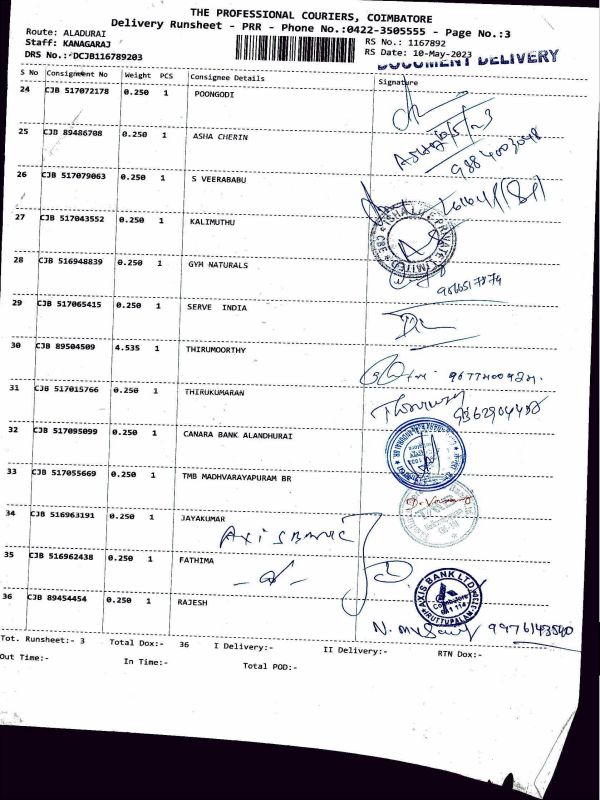 THE PROFESSIONAL COURIERS, COIMBATORE
Delivery Runsheet - PRR - Phone No.:0422-3505555 - Page No.:3
Route: ALADURAI
Staff: KANAGARAJ
DRS No.:*DCJB116789203
RS No.: 1167892
RS Date: 10-May-2023
DOCUMENT DELIVERY
S No Consignment No Weight PCS Consignee Details Signature
24 CJB 517072178 0.250 1 POONGODI
25 CJB 89486708 0.250 1 ASHA CHERIN
9884003048
26 CJB 517079063 0.250 1 S VEERABABU
27 CJB 517043552 0.250 1 KALIMUTHU
28 CJB 516948839 0.250 1 GYM NATURALS
29 CJB 517065415 0.250 1 SERVE INDIA
30 CJB 89504509 4.535 1 THIRUMOORTHY
31 CJB 517015766 0.250 1 THIRUKUMARAN
32 CJB 517095099 0.250 1 CANARA BANK ALANDHURAI
33 CJB 517055669 0.250 1 TMB MADHVARAYAPURAM BR
34 CJB 516963191 0.250 1 JAYAKUMAR
35 CJB 516962438 0.250 1 FATHIMA
AXIS BANK LTD
Coimbatore
IRUTTUPALLAM
36 CJB 89454454 0.250 1 RAJESH
9976143540
Tot. Runsheet:- 3 Total Dox:- 36 I Delivery:- II Delivery:- RTN Dox:-
Out Time:- In Time:- Total POD:-